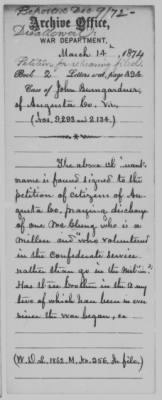 Reported Dec 9/72-
Disallowed.
Archive Office,
WAR DEPARTMENT,
March 14th, 1874
Petition for rehearing filed.
Book 2 Letters sent, page 326
Case of John Bumgardner,
of Augusta Co. Va.
(Nos. 9293 and 2134.)
The above cl "want-
name is found signed to the
petition of citizens of Au-
gusta Co., praying discharge
of one McClung who is a
miller and "who volunteered
in the Confederate service
rather than go in the
Has three brothers in the army
two of which have been in ever
since the war began,
(W.D.L. 1862. M. No. 256. In file.)